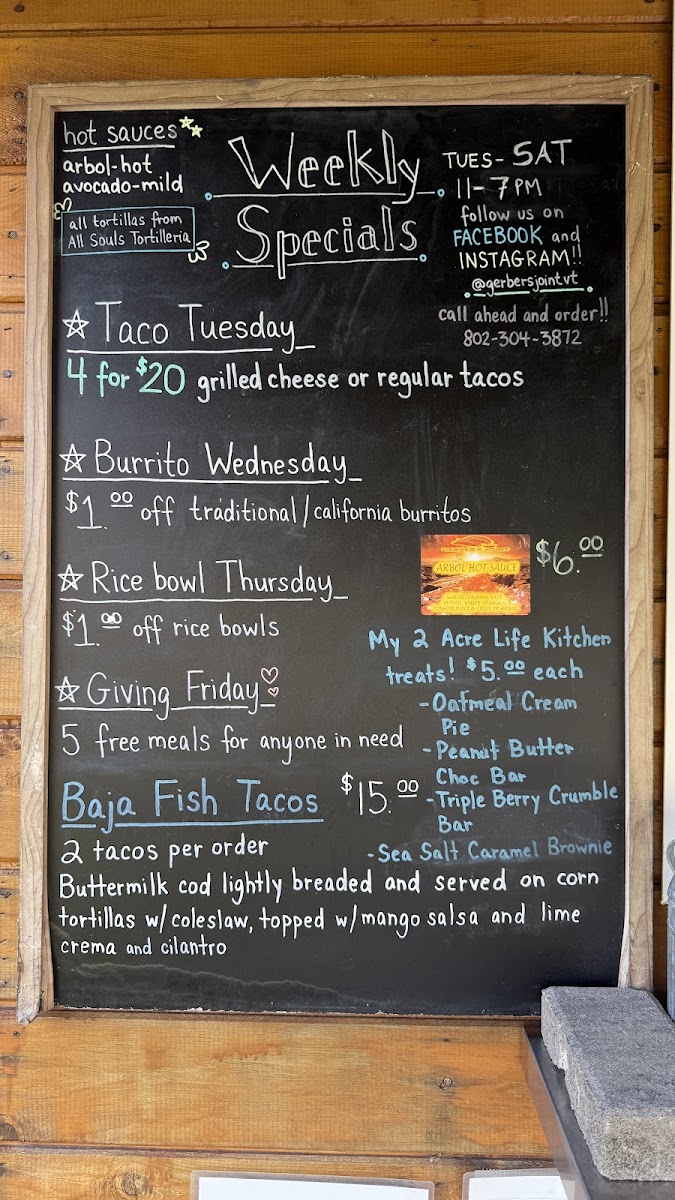 hot sauces
arbol-hot
avocado-mild
all tortillas from
All Souls Tortilleria
Weekly
Specials
TUES- SAT
11-7PM
follow us on
FACEBOOK and
INSTAGRAM!!
@gerbersjointvt
call ahead and order!!
802-304-3872
Taco Tuesday
4 for $20 grilled cheese or regular tacos
Burrito Wednesday
$1.00 off traditional/california burritos
Rice bowl Thursday
$1.00 off rice bowls
Giving Friday
5 free meals for anyone in need
GERBER'S JOINT
ARBOL HOT SAUCE
$6.00
My 2 Acre Life Kitchen
treats! $5.00 each
-Oatmeal Cream
Pie
-Peanut Butter
Choc Bar
-Triple Berry Crumble
Bar
-Sea Salt Caramel Brownie
Baja Fish Tacos $15.00
2 tacos per order
Buttermilk cod lightly breaded and served on corn
tortillas w/coleslaw, topped w/mango salsa and lime
crema and cilantro